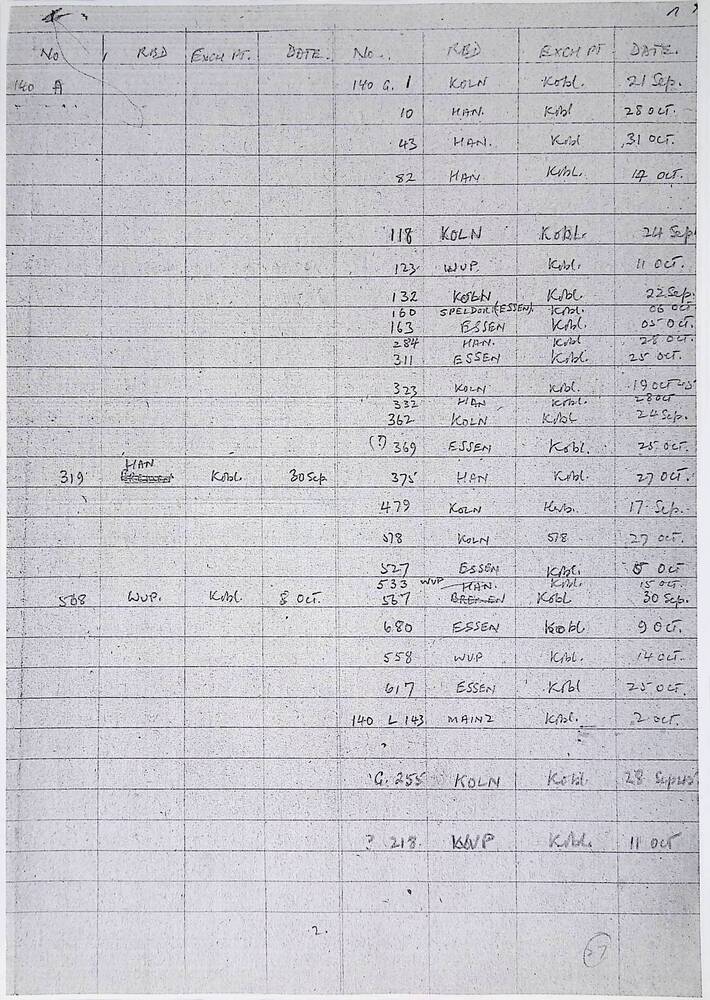 No RBD EXCH PT. DATE. No.. RBD EXCH PT DATE.
140 A 140 G. 1 KOLN Kobl. 21 Sep.
10 HAN. Kobl 28 Oct.
43 HAN. Kobl 31 Oct.
82 HAN Kobl. 17 Oct.
118 KOLN Kobl. 24 Sep
123 WUP. Kobl. 11 Oct.
132 KOLN Kobl. 22 Sep.
160 SPELDORF (ESSEN). Kobl. 06 Oct
163 ESSEN Kobl. 05 Oct.
284 HAN. Kobl 28 Oct
311 ESSEN Kobl. 25 Oct.
323 KOLN Kobl. 19 Oct 45
332 HAN Kobl. 28 Oct
362 KOLN Kobl 24 Sep.
(?) 369 ESSEN Kobl. 25 Oct.
319 HAN Kobl. 30 Sep 375 HAN Kobl. 27 Oct.
479 KOLN 17 Sep.
578 KOLN 578 27 Oct.
527 ESSEN Kobl. 5 Oct
533 WUP Kobl. 15 Oct
508 WUP. Kobl. 8 Oct. 567 HAN. BREMEN Kobl 30 Sep.
680 ESSEN Kobl 9 Oct.
558 WUP Kobl. 14 Oct
617 ESSEN Kobl 25 Oct.
140 L 143 MAINZ Kobl. 2 Oct.
G. 255 KOLN Kobl 28 Sep 45
? 218. WUP Kobl. 11 Oct
2.
27